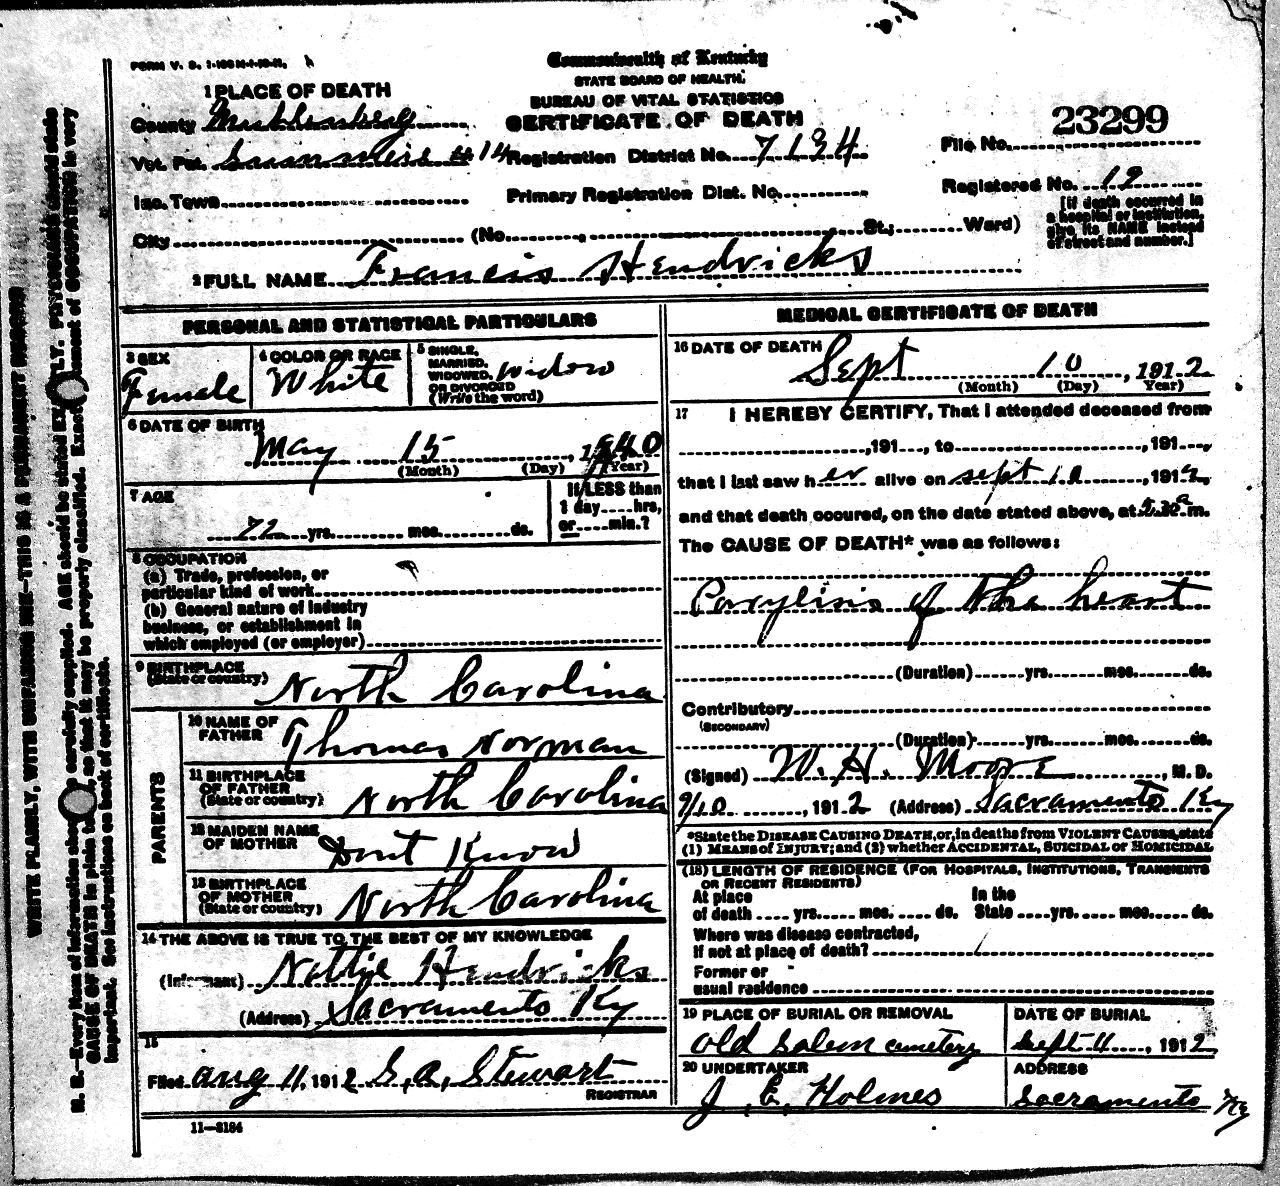 FORM V. S. 1-
Commonwealth of Kentucky
STATE BOARD OF HEALTH.
BUREAU OF VITAL STATISTICS
CERTIFICATE OF DEATH
1 PLACE OF DEATH
County Muhlenberg
Vot. Pct. #14 Registration District No. 7134
File No. 23299
Inc. Town Primary Registration Dist. No. Registered No. 12
City (No. , St.; Ward)
[If death occurred in
a hospital or institution,
give its NAME instead
of street and number.]
2 FULL NAME Francis Hendricks
PERSONAL AND STATISTICAL PARTICULARS
3 SEX
Female
4 COLOR OR RACE
White
5 SINGLE,
MARRIED,
WIDOWED,
OR DIVORCED
(Write the word)
widow
6 DATE OF BIRTH
May 15, 1840
(Month) (Day) (Year)
7 AGE
72 yrs. mos. ds.
If LESS than
1 day hrs,
or min.?
8 OCCUPATION
(a) Trade, profession, or
particular kind of work
(b) General nature of industry
business, or establishment in
which employed (or employer)
9 BIRTHPLACE
(State or country)
North Carolina
PARENTS
10 NAME OF
FATHER
Thomas Norman
11 BIRTHPLACE
OF FATHER
(State or country)
North Carolina
12 MAIDEN NAME
OF MOTHER
Dont Know
13 BIRTHPLACE
OF MOTHER
(State or country)
North Carolina
14 THE ABOVE IS TRUE TO THE BEST OF MY KNOWLEDGE
(Informant) Nottie Hendricks
(Address) Sacramento Ky
15
Filed aug 11, 1912 G. A. Stewart
REGISTRAR
11-3184
MEDICAL CERTIFICATE OF DEATH
16 DATE OF DEATH
Sept 10, 1912
(Month) (Day) (Year)
17 I HEREBY CERTIFY, That I attended deceased from
, 191 , to , 191 ,
that I last saw her alive on sept 10, 1912,
and that death occured, on the date stated above, at 5.30 a m.
The CAUSE OF DEATH* was as follows:
Parylisis of the heart
(Duration) yrs. mos. ds.
Contributory
(SECONDARY)
(Duration) yrs. mos. ds.
(Signed) W. H. Moore, M. D.
9/10, 1912 (Address) Sacramento Ky
*State the DISEASE CAUSING DEATH, or, in deaths from VIOLENT CAUSES, state
(1) MEANS of INJURY; and (2) whether ACCIDENTAL, SUICIDAL or HOMICIDAL
(18) LENGTH OF RESIDENCE (FOR HOSPITALS, INSTITUTIONS, TRANSIENTS
OR RECENT RESIDENTS)
At place
of death yrs. mos. ds.
In the
State yrs. mos. ds.
Where was disease contracted,
if not at place of death?
Former or
usual residence
19 PLACE OF BURIAL OR REMOVAL
old Salem cemetery
DATE OF BURIAL
Sept 11, 1912
20 UNDERTAKER
J. E. Holmes
ADDRESS
Sacramento Ky
WRITE PLAINLY, WITH UNFADING INK—THIS IS A PERMANENT RECORD
N. B.—Every item of information should be carefully supplied. AGE should be stated EXACTLY. PHYSICIANS should state
CAUSE OF DEATH in plain terms, so that it may be properly classified. Exact statement of OCCUPATION is very
important. See instructions on back of certificate.